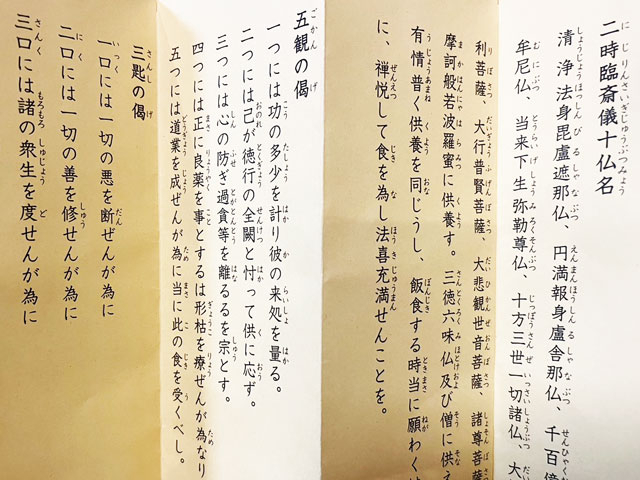 二時臨斎儀十仏名
清浄法身毘盧遮那仏、円満報身盧舎那仏、千百億
牟尼仏、当来下生弥勒尊仏、十方三世一切諸仏、大
利菩薩、大行普賢菩薩、大悲観世音菩薩、諸尊菩薩
摩訶般若波羅蜜に供養す。三徳六味仏及び僧に供え
有情普く供養を同じうし、飯食する時当に願わく
に、禅悦して食を為し法喜充満せんことを。
五観の偈
一つには功の多少を計り彼の来処を量る。
二つには己が徳行の全闕と忖って供に応ず。
三つには心の防ぎ過貪等を離るるを宗とす。
四つには正に良薬を事とするは形枯を療ぜんが為なり
五つには道業を成ぜんが為に当に此の食を受くべし。
三匙の偈
一口には一切の悪を断ぜんが為に
二口には一切の善を修せんが為に
三口には諸の衆生を度せんが為に